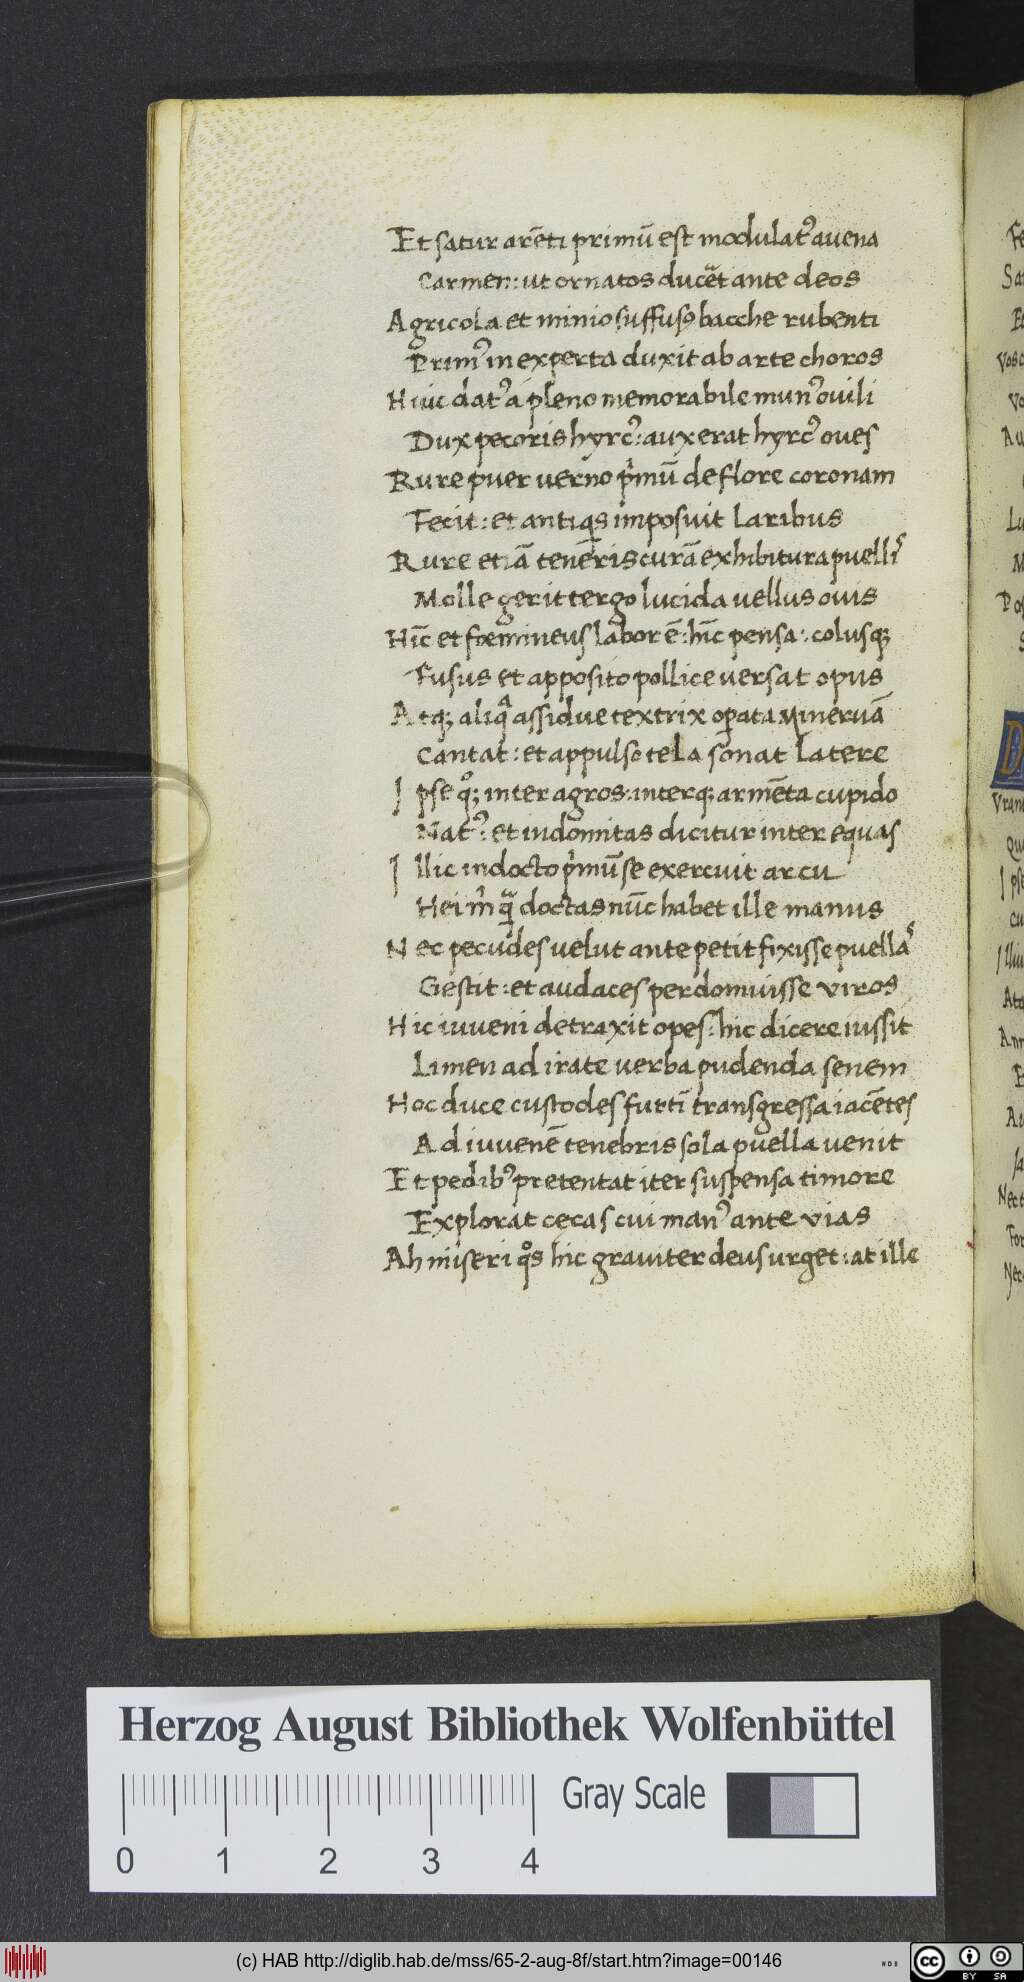 Et satur arēti primū est modulatꝰ auena
Carmen: ut ornatos ducēt ante deos
Agricola et minio suffuso bacche rubenti
Primꝰ inexperta duxit ab arte choros
Huic datꝰ a pleno memorabile munꝰ ouili
Dux pecoris hyrcꝰ: auxerat hyrcꝰ oues
Rure puer uerno pͥmū de flore coronam
Fecit: et antiqs imposuit laribus
Rure etiā teneris curā exhibitura puellis
Molle gerit tergo lucida uellus ouis
Hīc et foemineus labor ē: hīc pensa: colusqꝫ
Fusus et apposito pollice uersat opus
Atqꝫ aliqͣ assidue textrix oꝑata mineruā
Cantat: et appulso tela sonat latere
Ipse qͦꝫ inter agros: interqꝫ armēta cupido
Natꝰ: et indomitas dicitur inter equas
Illic indocto pͥmū se exercuit arcu
Hei mͥ qͣ doctas nūc habet ille manus
Nec pecudes uelut ante petit fixisse puellas
Gestit: et audaces perdomuisse viros
Hic iuueni detraxit opes: hic dicere iussit
Limen ad irate uerba pudenda senem
Hoc duce custodes furtī transgressa iacētes
Ad iuuenē tenebris sola puella uenit
Et pedibꝰ pretentat iter suspensa timore
Explorat cecas cui manꝰ ante vias
Ah miseri qͦs hic grauiter deus urget: at ille
Herzog August Bibliothek Wolfenbüttel
Gray Scale
0 1 2 3 4
(c) HAB http://diglib.hab.de/mss/65-2-aug-8f/start.htm?image=00146
cc BY SA